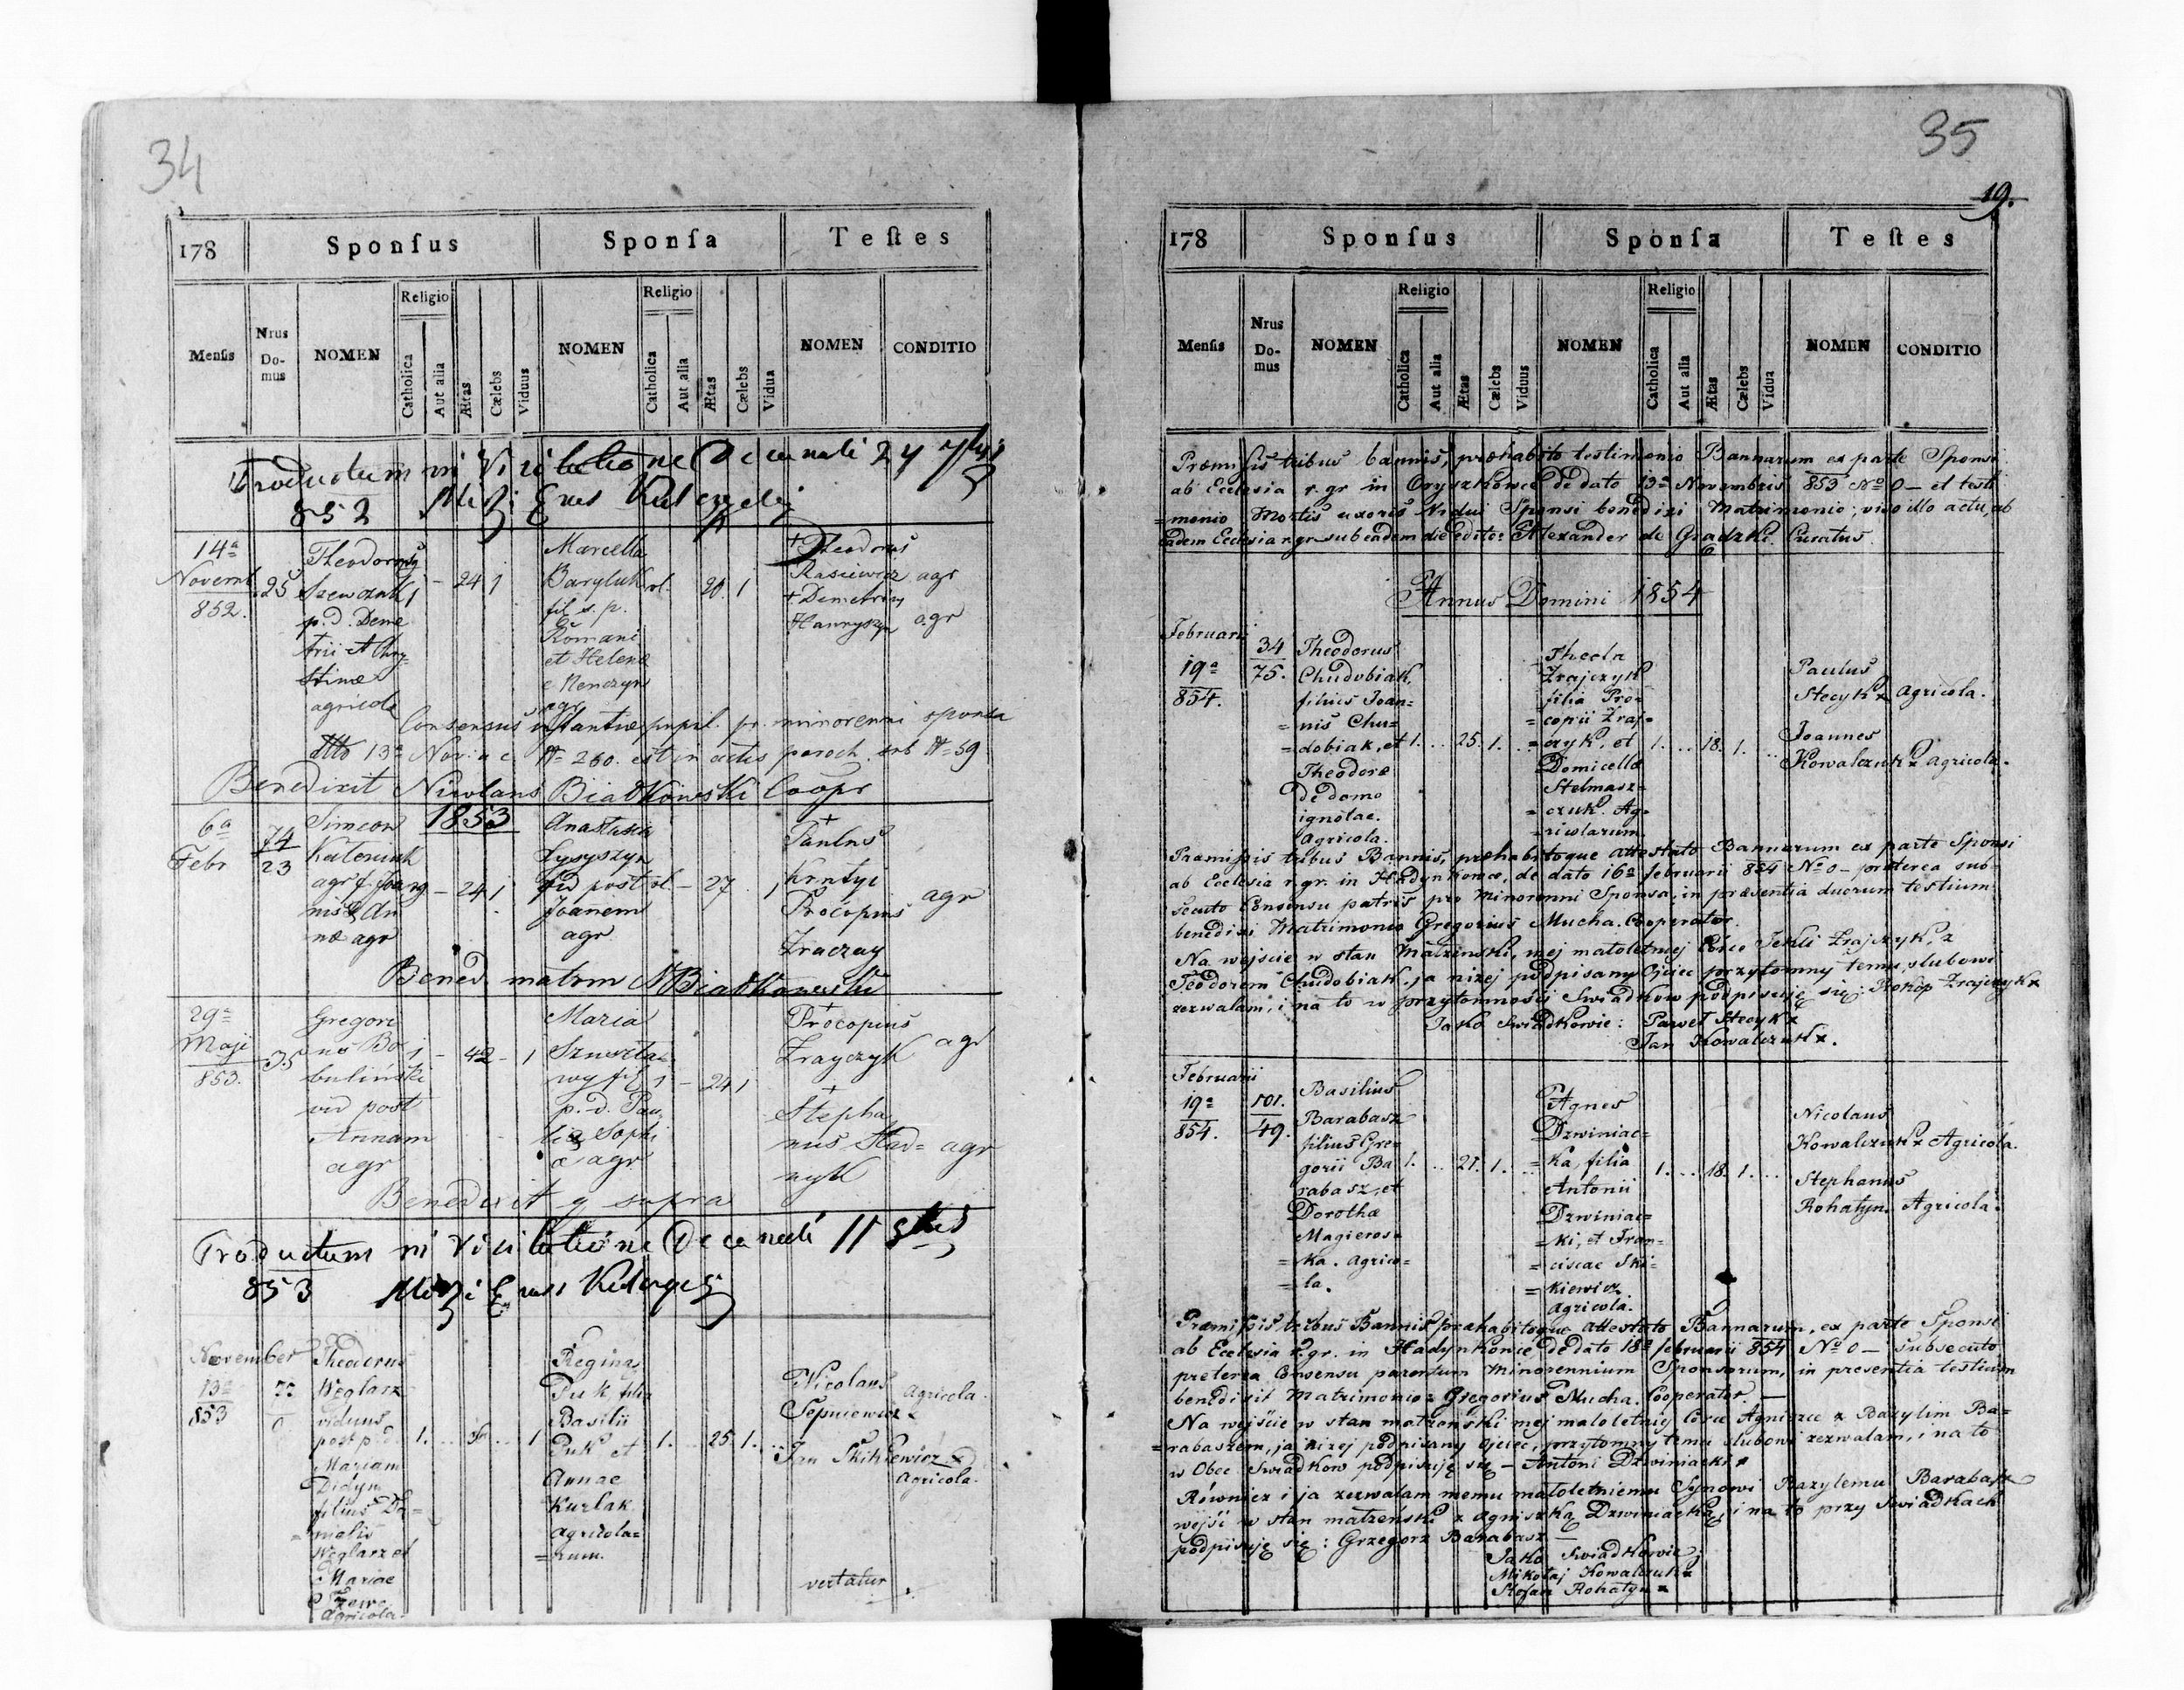 34
178 Sponſus Sponſa Teſtes
Menſis Nrus Do- mus NOMEN Religio Catholica Aut alia Ætas Cælebs Viduus NOMEN Religio Catholica Aut alia Ætas Cælebs Vidua NOMEN CONDITIO
Productum in Visitatione Decanali 24
852
14a
Novemb
852.
25
Theodorus
Szewczuk
p.d. Deme
trii et Chry-
stinæ
agricola
1 - 24 1
Marcella
Baryluk
fil s. p.
Romani
et Helenæ
agr
20. 1
+ Theodorus
Rasiewicz agr
+ Demetrius
Hawryszyn agr
Consensus instantiæ pupil. pr. minorenni sponsa
dtto 13a Nov: a c N= 260. est in actis paroch. sub N=59
Benedixit Nicolaus Białkowski Coopr
1853
6a
Febr
74
23
Simeon
Kateriuk
agr f. Joan
nis & An
næ agr
- 24 1
Anastasia
Łysyszyn
vid post
Joannem
agr
- 27 . 1
+
Paulus
Krutyi
Procopius agr
Zraczay
Bened. matrm N Białkowski
29a
Maji
853.
35
Gregori
us Bo
buliński
vid post
Annam
agr
1 - 42 - 1
Maria
wy fil
p. d. Pau
li & Sophi
æ agr
1 - 24 1
+
Procopius
Zrayczyk agr
+
Stepha
nus Had= agr
nyk
Benedixit q supra
Productum in Visitatione Decanali 11
853
November
13a
853
72
0
Theodorus
Węglarz
viduus
post p.d.
Mariam
Didyn
filius Da=
=nielis
Węglarz et
Mariae
Agricola.
1. .. 36 .. 1
Regina
Puk filia
Basilii
Puk et
Annae
Kurlak
agricola=
=rum.
1. .. 25. 1. ..
Nicolaus Agricola.
Sepniewicz x
Jan Skikiewicz x
Agricola.
vertatur
35
19.
178 Sponſus Sponſa Teſtes
Menſis Nrus Do- mus NOMEN Religio Catholica Aut alia Ætas Cælebs Viduus NOMEN Religio Catholica Aut alia Ætas Cælebs Vidua NOMEN CONDITIO
Præmissis tribus bannis, præhabito testimonio Bannarum ex parte Sponsi
ab Ecclesia r. gr. in Oryszkowce de dato 13a Novembris 853 No 0 — et testi
=monio Mortis uxoris Vidui Sponsi benedixi Matrimonio, viso illo actu, ab
Eadem Ecclesia r. gr. sub eadem die edito: Alexander de Gradzki Curatus.
Annus Domini 1854
Februarii
19a
854.
34
75.
Theodorus
Chudobiak,
filius Joan=
=nis Chu=
=dobiak, et
Theodoræ
de domo
ignotae.
Agricola.
1. .. 25. 1. ..
Thecla
Zrajczyk
filia Pro=
=copii Zraj=
=czyk, et
Domicellæ
Stelmasz=
=czuk. Ag=
=ricolarum.
1. .. 18. 1. ..
Paulus
Stecyk x Agricola.
Joannes
Kowalczuk x Agricola.
Præmissis tribus Bannis, præhabitoque attestato Bannarum ex parte Sponsi
ab Ecclesia r. gr. in Hadynkowce, de dato 16a februarii 854 No 0 — præterea sub=
secuto Consensu patris pro Minorenni Sponsa, in præsentia duorum testium
benedixi Matrimonio Gregorius Mucha. Cooperator.
Na wejście w stan Małżeński, mej małoletniej Córce Tekli Zrajczyk, z
Teodorem Chudobiak, ja niżej podpisany Ojciec przytomny temu ślubowi
zezwalam, i na to w przytomności Świadkow podpisuję się: Prokop Zrajczyk x
Jako Świadkowie: Paweł Stecyk x
Jan Kowalczuk x.
Februarii
19a
854.
101.
49.
Basilius
Barabasz
filius Gre=
gorii Ba
rabasz, et
Dorothæ
Magieros=
=ka. Agrico=
=la.
1. .. 21. 1. ..
Agnes
Dzwiniac=
=ka, filia
Antonii
Dzwiniac=
=ki, et Fran=
=ciscae Ski=
=kiewicz.
Agricola.
1. .. 18. 1. ...
Nicolaus
Kowalczuk x Agricola.
Stephanus
Rohatyn. Agricola.
Præmissis tribus Bannis præhabitoque attestato Bannarum, ex parte Sponsi
ab Ecclesia r. gr. in Hadynkowce de dato 18a februarii 854 No 0 — Subsecuto
preterea Consensu parentum Minorennium Sponsorum, in presentia testium
benedixit Matrimonio Gregorius Mucha. Cooperator. —
Na wejście w stan małżeński mej małoletniej Córce Agniszce z Bazylim Ba=
=rabaszem, ja niżej podpisany Ojciec, przytomny temu ślubowi zezwalam, i na to
w Obec Świadkow podpisuję się — Antoni Dzwiniacki x
Również i ja zezwalam memu małoletniemu Synowi Bazylemu Barabasz
wejść w stan małżeński z Agniszką Dzwiniacką, i na to przy Świadkach
podpisuję się: Grzegorz Barabasz —
Jako Świadkowie;
Mikołaj Kowalczuk x
Stefan Rohatyn x